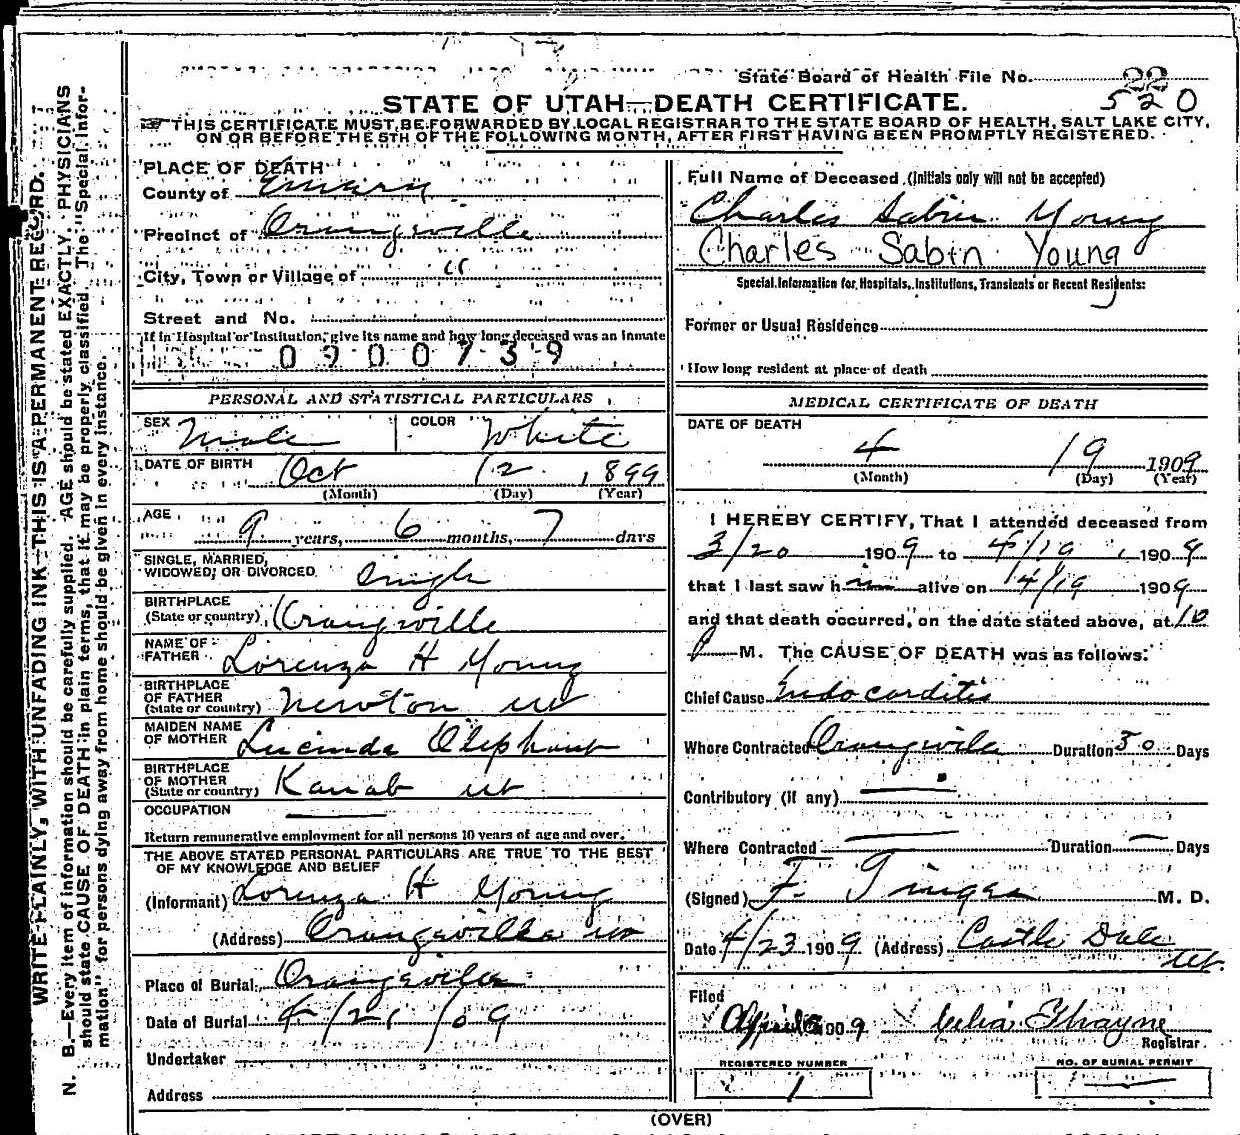 State Board of Health File No. 22
520
STATE OF UTAH—DEATH CERTIFICATE.
THIS CERTIFICATE MUST BE FORWARDED BY LOCAL REGISTRAR TO THE STATE BOARD OF HEALTH, SALT LAKE CITY,
ON OR BEFORE THE 5TH OF THE FOLLOWING MONTH, AFTER FIRST HAVING BEEN PROMPTLY REGISTERED.
WRITE PLAINLY, WITH UNFADING INK—THIS IS A PERMANENT RECORD.
N. B.—Every item of information should be carefully supplied. AGE should be stated EXACTLY. PHYSICIANS
should state CAUSE OF DEATH in plain terms, that it may be properly classified. The "Special Infor-
mation" for persons dying away from home should be given in every instance.
PLACE OF DEATH
County of Emery
Precinct of Orangeville
City, Town or Village of "
Street and No.
If in Hospital or Institution, give its name and how long deceased was an inmate
0900739
PERSONAL AND STATISTICAL PARTICULARS
SEX Male COLOR White
DATE OF BIRTH Oct 12, 1899
(Month) (Day) (Year)
AGE 9 years, 6 months, 7 days
SINGLE, MARRIED,
WIDOWED, OR DIVORCED Single
BIRTHPLACE
(State or country) Orangeville
NAME OF
FATHER Lorenzo H Young
BIRTHPLACE
OF FATHER
(State or country) Newton Ut
MAIDEN NAME
OF MOTHER Lucinda Oliphant
BIRTHPLACE
OF MOTHER
(State or country) Kanab Ut
OCCUPATION
Return remunerative employment for all persons 10 years of age and over.
THE ABOVE STATED PERSONAL PARTICULARS ARE TRUE TO THE BEST
OF MY KNOWLEDGE AND BELIEF
(Informant) Lorenzo H Young
(Address) Orangeville Ut
Place of Burial Orangeville
Date of Burial 4/21/09
Undertaker
Address
Full Name of Deceased (Initials only will not be accepted)
Charles Sabin Young
Charles Sabin Young
Special Information for Hospitals, Institutions, Transients or Recent Residents:
Former or Usual Residence
How long resident at place of death
MEDICAL CERTIFICATE OF DEATH
DATE OF DEATH
4 19 1909
(Month) (Day) (Year)
I HEREBY CERTIFY, That I attended deceased from
3/20 1909 to 4/19, 1909
that I last saw him alive on 4/19 1909
and that death occurred, on the date stated above, at 10
P M. The CAUSE OF DEATH was as follows:
Chief Cause Endocarditis
Where Contracted Orangeville Duration 30 Days
Contributory (if any)
Where Contracted Duration Days
(Signed) F. M. D.
Date 4/23 1909 (Address) Castle Dale
Ut.
Filed
April 1909 Celia Thayne
Registrar.
REGISTERED NUMBER NO. OF BURIAL PERMIT
1
(OVER)